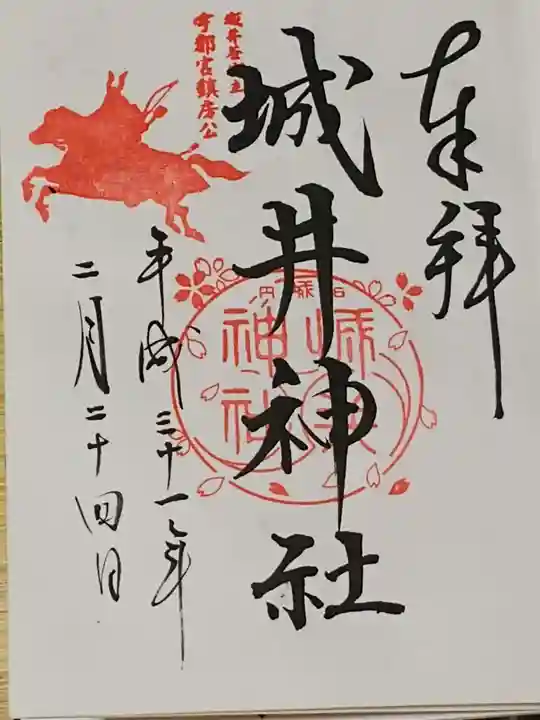 奉拝
城井神社
城井谷城主
宇都宮鎮房公
城井
神社
平成三十一年
二月二十四日